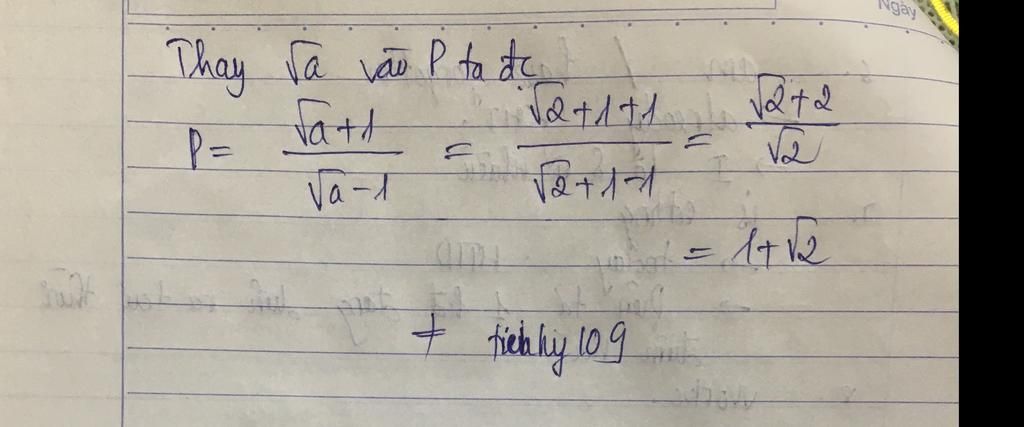 Ngày
Thay √a vào P ta đc
P = (√a + 1)/(√a - 1) = (√2 + 1 + 1)/(√2 + 1 - 1) = (√2 + 2)/√2
= 1 + √2
109